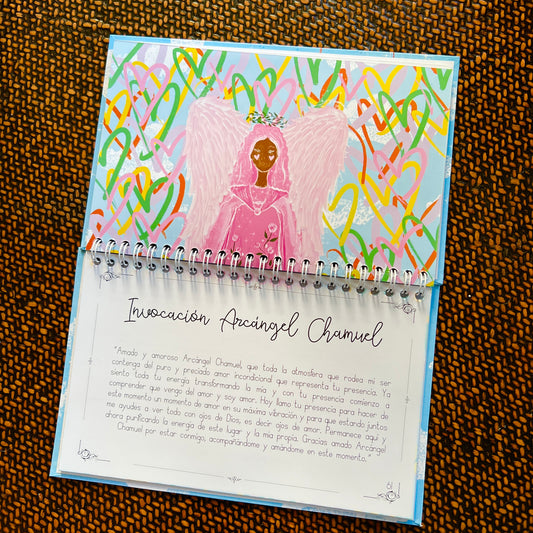 Invocación Arcángel Chamuel
"Amado y amoroso Arcángel Chamuel, que toda la atmósfera que rodea mi ser
contenga del puro y preciado amor incondicional que representa tu presencia. Ya
siento toda tu energía transformando la mía y con tu presencia comienzo a
comprender que vengo del amor y soy amor. Hoy llamo tu presencia para hacer de
este momento un momento de amor en su máxima vibración y para que estando juntos
me ayudes a ver todo con ojos de Dios, es decir ojos de amor. Permanece aquí y
ahora purificando la energía de este lugar y la mia propia. Gracias amado Arcángel
Chamuel por estar conmigo, acompañándome y amándome en este momento."
61